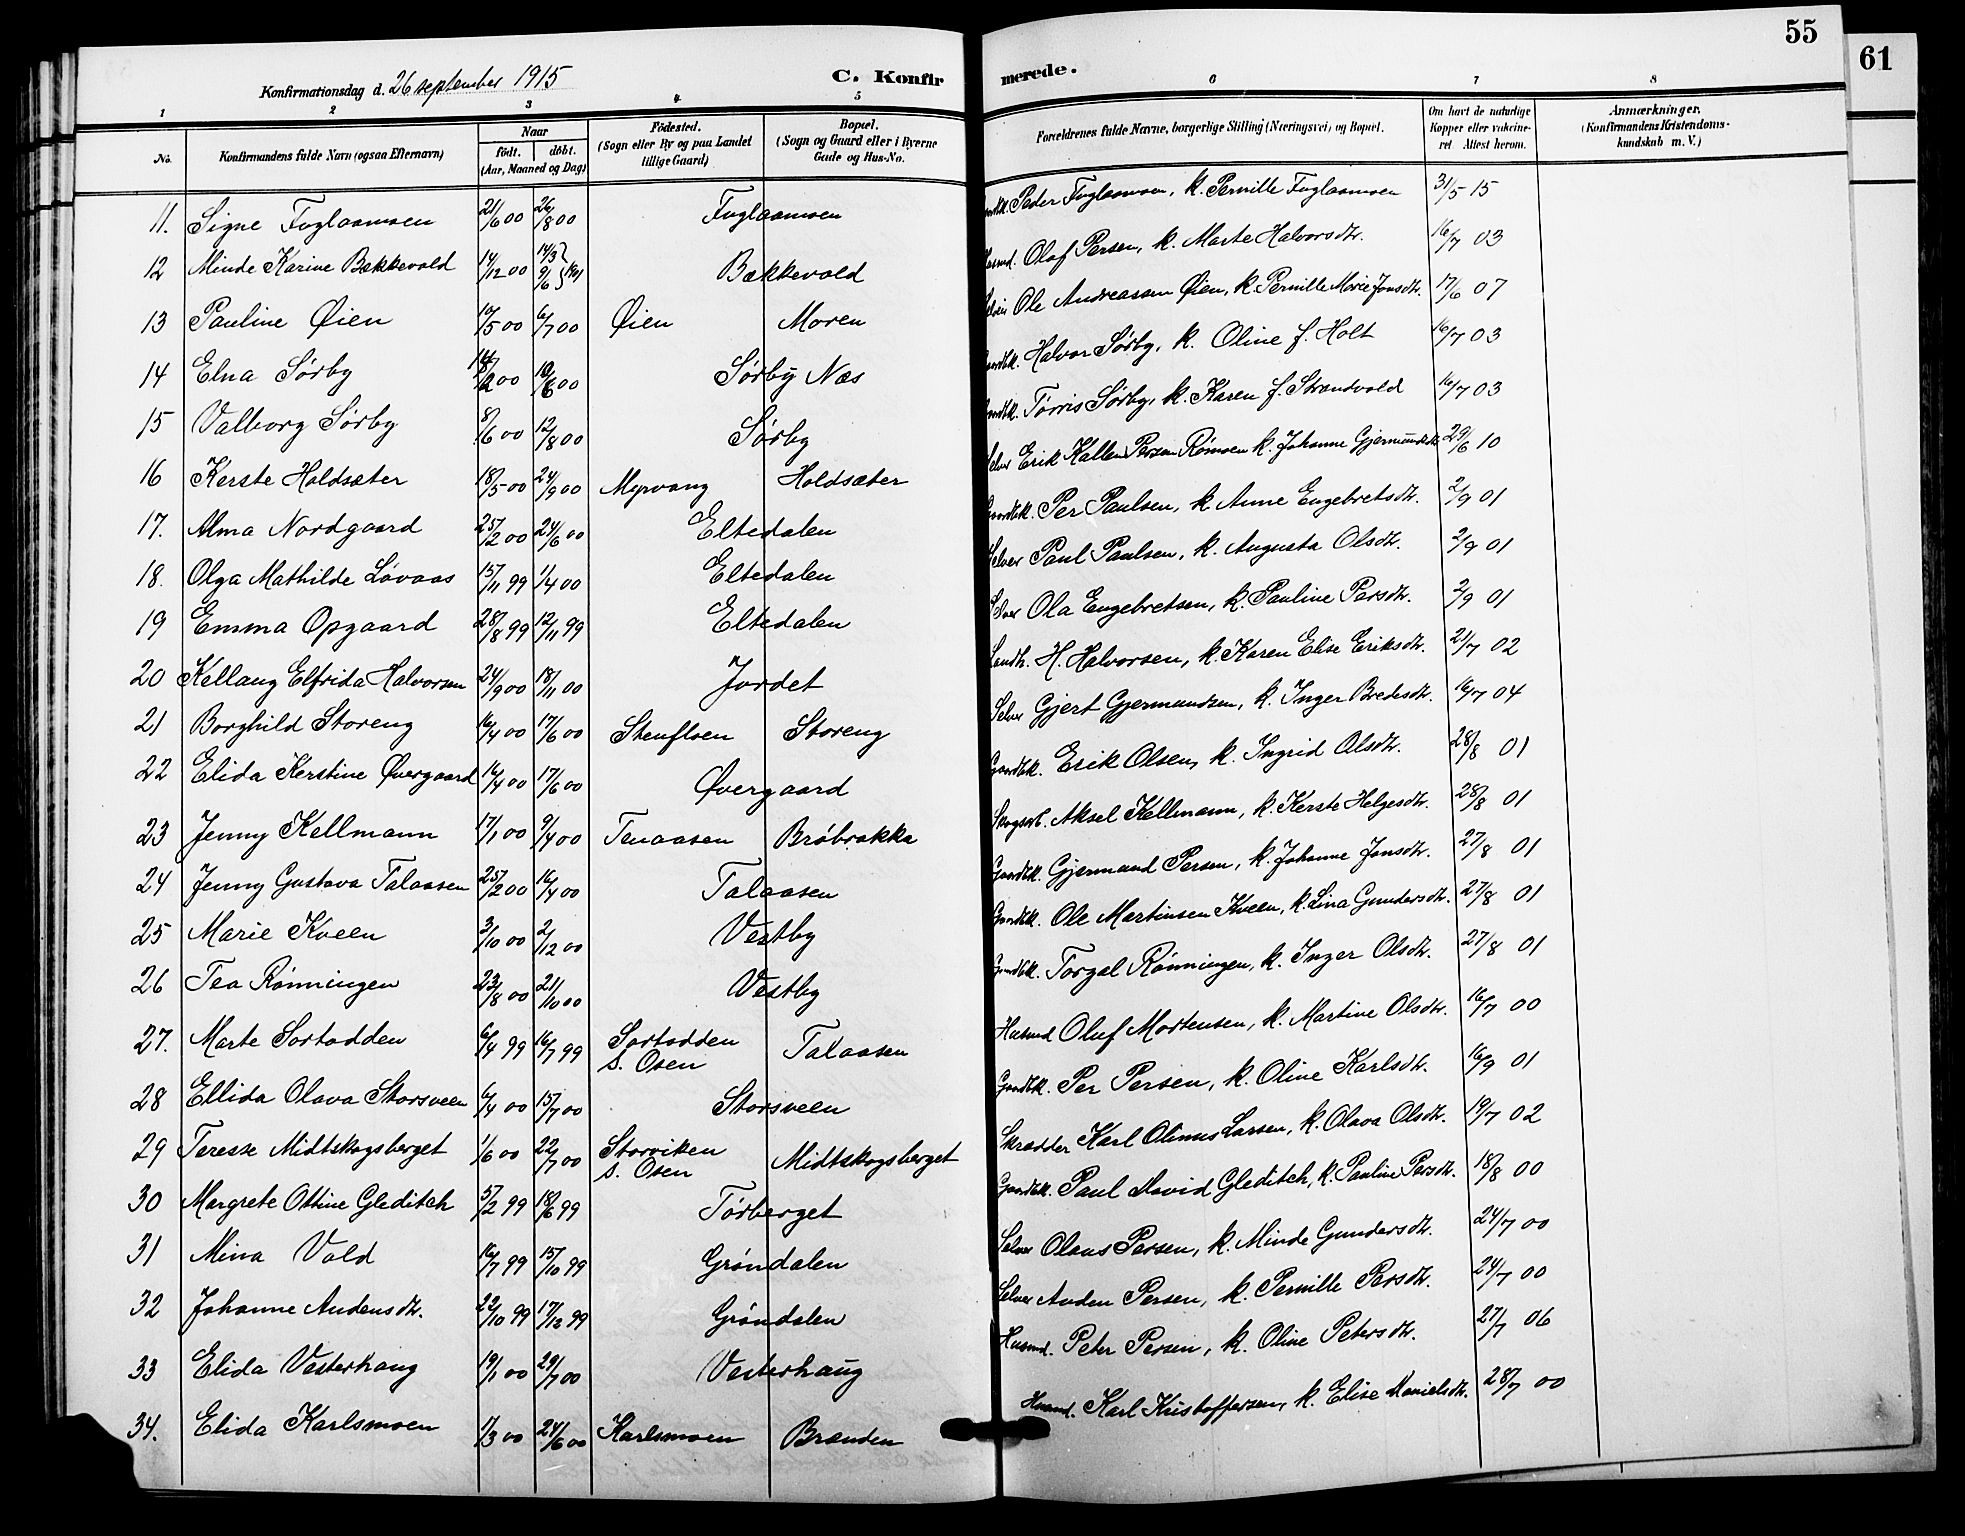 55
61
Konfirmationsdag d. 26 september 1915
C. Konfirmerede.
1 2 3 4 5 6 7 8
No. Konfirmandens fulde Navn (ogsaa Efternavn) Naar født. døbt. (Aar, Maaned og Dag) Fødested. (Sogn eller By og paa Landet tillige Gaard) Bopæl. (Sogn og Gaard eller i Byerne Gade og Hus-No. Forældrenes fulde Navne, borgerlige Stilling (Næringsvei) og Bopæl. Om havt de naturlige Kopper eller vakcineret. Attest herom. Anmærkninger. (Konfirmandens Kristendomskundskab m. V.)
11. Signe Fuglaamoen 21/6 00 26/8 00 Fuglaamoen Peder Fuglaamoen, k. Pernille Fuglaamoen 31/5 15
12 Minde Karine Bækkevold 14/12 00 14/3 9/6 Bækkevold Olaf Persen, k. Marte Halvorsdtr. 16/7 03
13 Pauline Øien 10/5 00 6/7 00 Øien Moren Ole Andreassen Øien, k. Pernille Marie Jonsdtr. 17/6 07
14 Elna Sørby 00 10/6 00 Sørby Næs Halvor Sørby, k. Oline f. Holt 16/7 03
15 Valborg Sørby 8/6 00 12/8 00 Sørby Tørris Sørby, k. Karen f. Strandvold 16/7 03
16 Kerste Holdsæter 18/5 00 24/9 00 Myrvang Holdsæter Selvei Erik Kallen Persen Rømoen k. Johanne Gjermundsdtr. 29/6 10
17. Alma Nordgaard 25/2 00 24/6 00 Eltedalen Gaardbk. Per Paulsen, k. Anne Engebretsdtr. 2/9 01
18. Olga Mathilde Løvaas 15/11 99 1/4 00 Eltedalen Selvei Paul Paulsen, k. Augusta Olsdtr. 2/9 01
19 Emma Opgaard 28/8 99 12/11 99 Eltedalen Selvei Ola Engebretsen, k. Pauline Persdtr. 2/9 01
20 Kellaug Elfrida Halvorsen 24/9 00 18/11 00 Jordet Landh. H. Halvorsen, k. Karen Elise Eriksdtr. 21/7 02
21 Borghild Storeng 16/4 00 17/6 00 Stenfloen Storeng Selvei Gjert Gjermundsen, k. Inger Bredesdtr. 16/7 04
22 Elida Kerstine Øvergaard 16/4 00 17/6 00 Øvergaard Gaardbk. Erik Olsen, k. Ingrid Olsdtr. 28/8 01
23 Jenny Kellmann 17/1 00 9/4 00 Tenaasen Brøbrakka Skogsarb. Aksel Kellmann, k. Kerste Helgesdtr. 28/8 01
24 Jenny Gustava Talaasen 25/2 00 16/4 00 Talaasen Gaardbk. Gjermund Persen, k. Johanne Jonsdtr. 27/8 01
25 Marie Kveen 3/10 00 2/12 00 Vestby Gaardbk. Ole Martinsen Kveen, k. Lina Gundersdtr. 27/8 01
26 Tea Rønningen 23/8 00 21/10 00 Vestby Gaardbk. Torgal Rønningen, k. Inger Olsdtr. 27/8 01
27. Marte Sortodden 6/4 99 16/7 99 Sortodden Talaasen Husmd Oluf Mortensen, k. Martine Olsdtr. 16/7 00
s. Osen
28 Ellida Olava Storsveen 6/4 00 15/7 00 Storsveen Gaardbk. Per Persen, k. Oline Karlsdtr. 16/9 01
29 Terese Midtskogsberget 1/6 00 22/7 00 Storviken Midtskogsberget Skrædder Karl Olinus Larsen, k. Olava Olsdtr. 19/7 02
s. Osen
30 Margrete Ottine Gleditch 5/2 99 18/6 99 Tørberget Gaardbk. Paul David Gleditch, k. Pauline Persdtr. 18/8 00
31 Mina Vold 16/7 99 15/10 99 Grøndalen Selvei Olaus Persen, k. Minde Gundersdtr. 24/7 00
32 Johanne Audensdtr. 22/10 99 17/12 99 Grøndalen Selvei Auden Persen, k. Pernille Persdtr. 24/7 00
33 Elida Vesterhaug 19/1 00 29/7 00 Vesterhaug Husmd. Peter Persen, k. Oline Petersdtr. 27/7 06
34. Elida Karlsmoen 11/3 00 24/6 00 Karlsmoen Brænden Husmd. Karl Kristoffersen, k. Elise Danielsdtr. 28/7 00